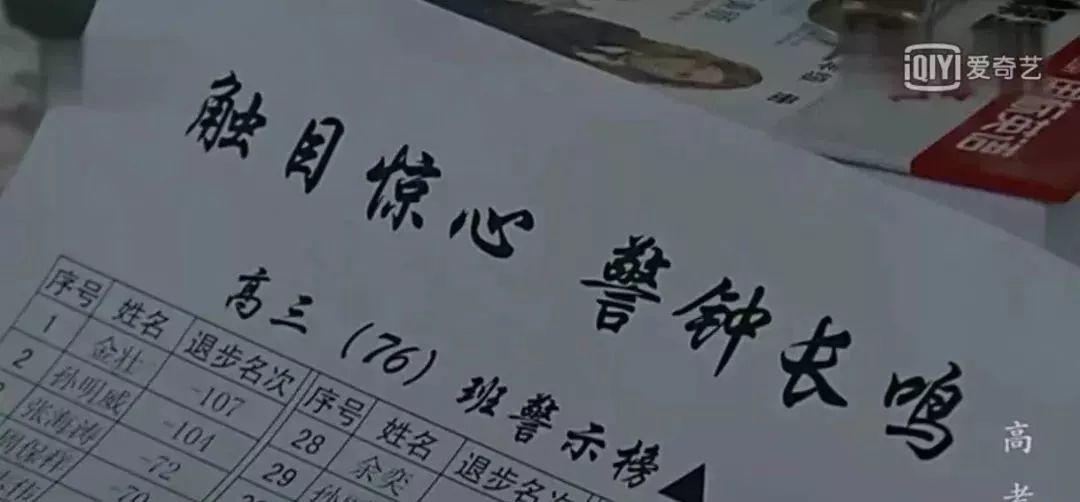 爱奇艺
触目惊心 警钟长鸣
高三(76)班警示榜
序号 姓名 退步名次
1 金壮 -107
2 孙明威 -104
张海涛 -72
-70
序号 姓名 退步名次
28 余奕
29
高考